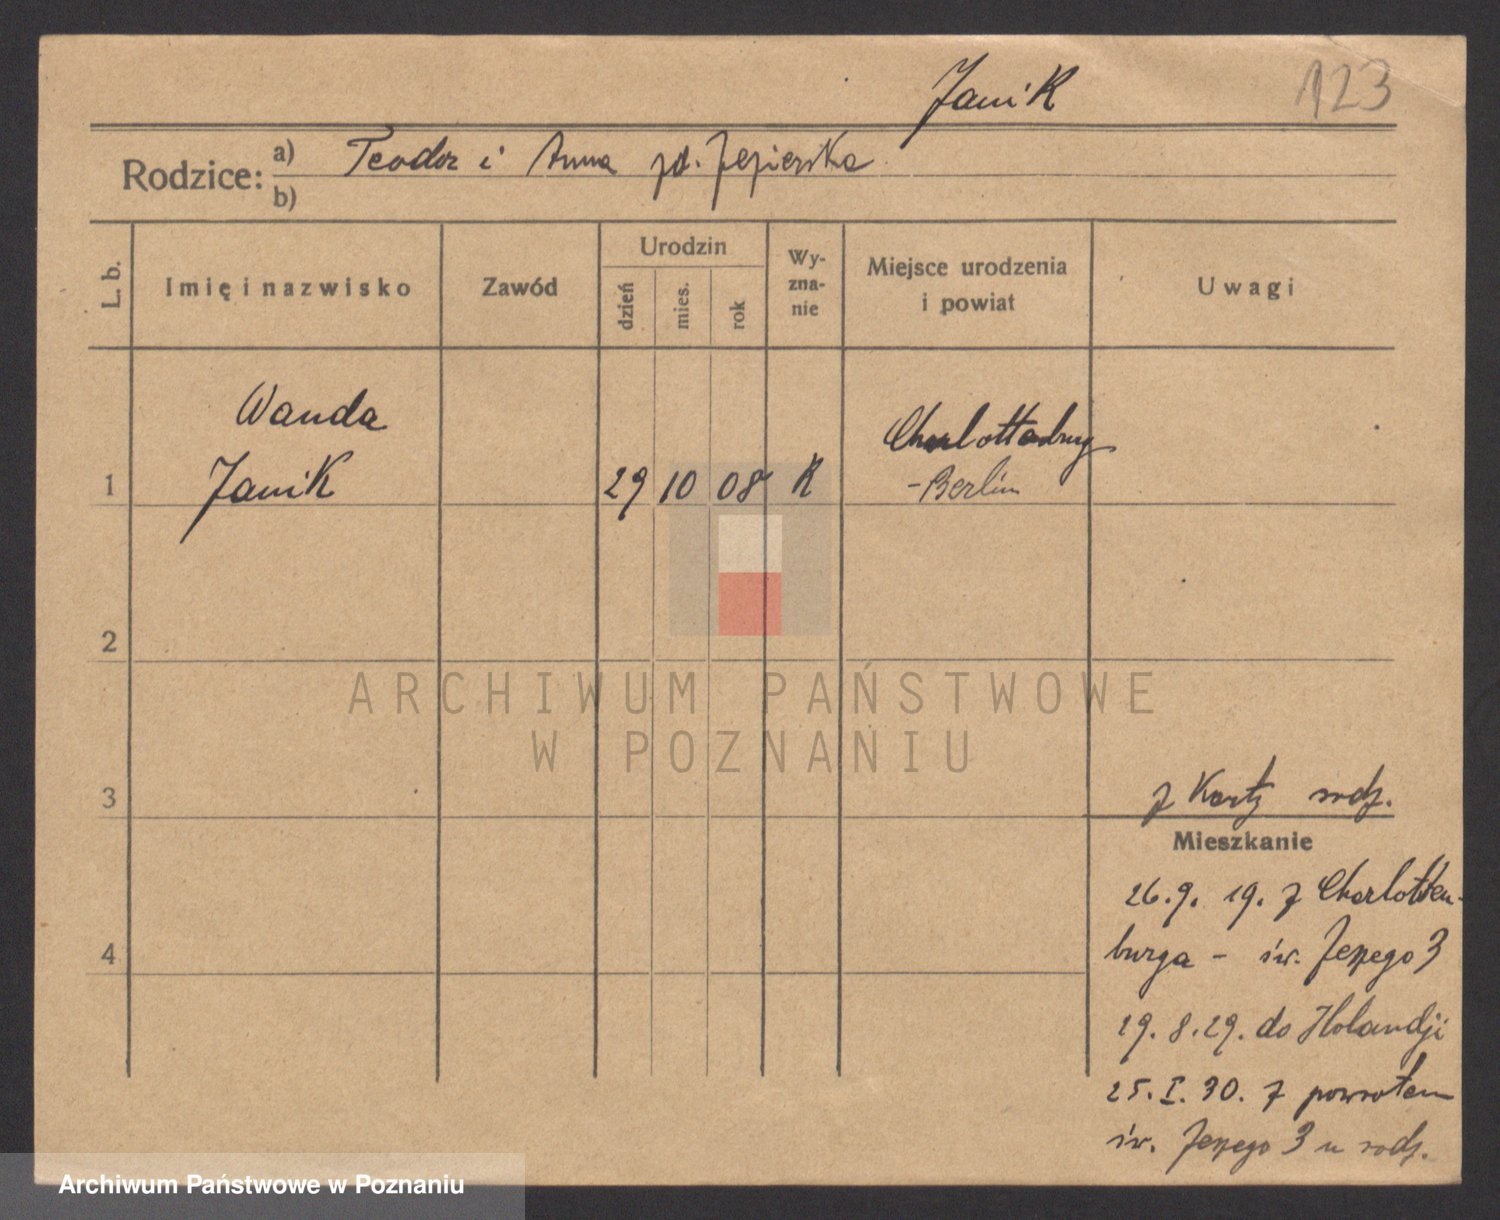 Janik
123
Rodzice: a) Teodor i Anna zd. Jezierska
b)
L. b.
Imię i nazwisko
Zawód
Urodzin
dzień
mies.
rok
Wy-
zna-
nie
Miejsce urodzenia
i powiat
Uwagi
Wanda
Charlottenburg
1 Janik 29 10 08 K -Berlin
2
ARCHIWUM PAŃSTWOWE
W POZNANIU
3 z karty rodz.
Mieszkanie
26.9. 19. z Charlotten-
4 burga - św. Jerzego 3
19. 8. 29. do Holandji
25. I. 30. z powrotem
św. Jerzego 3 u rodz.
Archiwum Państwowe w Poznaniu